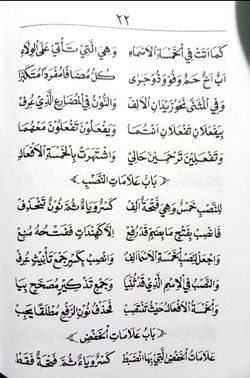 ٢٢
كَمَا اَتَتْ فِي الْخَمْسَةِ الْاَسْمَاءِ وَهِيَ الَّتِي تَأْتِي عَلَى الْوِلَاءِ
اَبٌ اَخٌ حَمٌ وَفُو وَذُو جَرَى كُلٌّ مُضَافًا مُفْرَدًا مُكَبَّرًا
وَفِي الْمُثَنَّى نَحْوُ زَيْدَانِ الْاَلِفْ وَالنُّونُ فِي الْمُضَارِعِ الَّذِي عُرِفْ
بِيَفْعَلَانِ تَفْعَلَانِ اَنْتُمَا وَيَفْعَلُونَ تَفْعَلُونَ مَعْهُمَا
وَتَفْعَلِينَ تَرْحَمِينَ حَالِي وَاشْتَهَرَتْ بِالْخَمْسَةِ الْاَفْعَالِ
﴿ بَابُ عَلَامَاتِ النَّصْبِ ﴾
لِلنَّصْبِ خَمْسٌ وَهِيَ فَتْحَةٌ اَلِفْ كَسْرٌ وَيَاءٌ ثُمَّ نُونٌ تَنْحَذِفْ
فَانْصِبْ بِفَتْحٍ مَا بِضَمٍّ قَدْ رُفِعْ اِلَّا كَهِنْدَاتٍ فَفَتْحُهُ مُنِعْ
وَاجْعَلْ لِنَصْبِ الْخَمْسَةِ الْاَسْمَا اَلِفْ وَانْصِبْ بِكَسْرٍ جَمْعَ تَأْنِيثٍ عُرِفْ
وَالنَّصْبُ فِي الْاِسْمِ الَّذِي قَدْ ثُنِّيَا وَجَمْعِ تَذْكِيرٍ مُصَحَّحٍ بِيَا
وَالْخَمْسَةُ الْاَفْعَالُ حَيْثُ تَنْتَصِبْ فَحَذْفُ نُونِ الرَّفْعِ مُطْلَقًا يَجِبْ
﴿ بَابُ عَلَامَاتِ الْخَفْضِ ﴾
عَلَامَاتُ الْخَفْضِ الَّتِي بِهَا انْضَبَطْ كَسْرٌ وَيَاءٌ ثُمَّ فَتْحَةٌ فَقَطْ